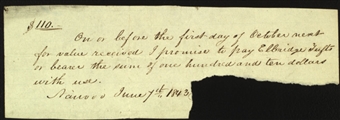 $110.-
On or before the first day of October next
for value received I promise to pay Elbridge Tufts
or bearer the sum of one hundred and ten dollars
with use.
Nauvoo June 7th. 1843